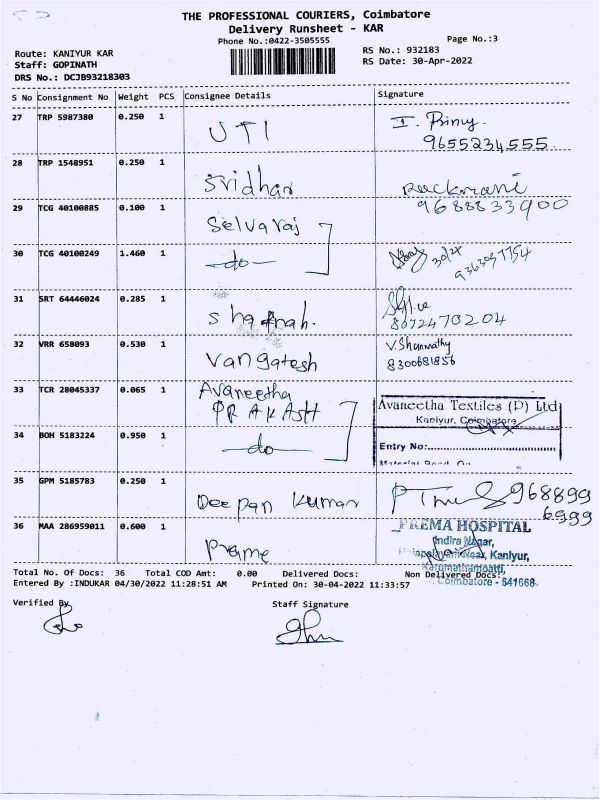 THE PROFESSIONAL COURIERS, Coimbatore
Delivery Runsheet - KAR
Phone No.:0422-3505555
Page No.:3
Route: KANIYUR KAR
RS No.: 932183
Staff: GOPINATH
RS Date: 30-Apr-2022
DRS No.: DCJB93218303
S No Consignment No Weight PCS Consignee Details Signature
27 TRP 5987380 0.250 1 UTI
9655234555
28 TRP 1548951 0.250 1 Sridhar Ruckmani
9688833900
29 TCG 40100885 0.100 1 Selvaraj
30 TCG 40100249 1.460 1 -do- 30/4
9363097754
31 SRT 64446024 0.285 1
8072470204
32 VRR 658093 0.530 1 Vangatesh
8300681856
33 TCR 28045337 0.065 1 Avaneetha
PRAKASH
Avaneetha Textiles (P) Ltd
Kaniyur, Coimbatore
34 BOH 5183224 0.950 1 -do-
Entry No:
35 GPM 5185783 0.250 1 Deepan Kumar 968899
6999
36 MAA 286959011 0.600 1 Prame
PREMA HOSPITAL
Indira Nagar,
Near, Kaniyur,
Karumathampatti,
Coimbatore - 641668.
Total No. Of Docs: 36 Total COD Amt: 0.00 Delivered Docs: Non Delivered Docs:
Entered By :INDUKAR 04/30/2022 11:28:51 AM Printed On: 30-04-2022 11:33:57
Verified By
Staff Signature